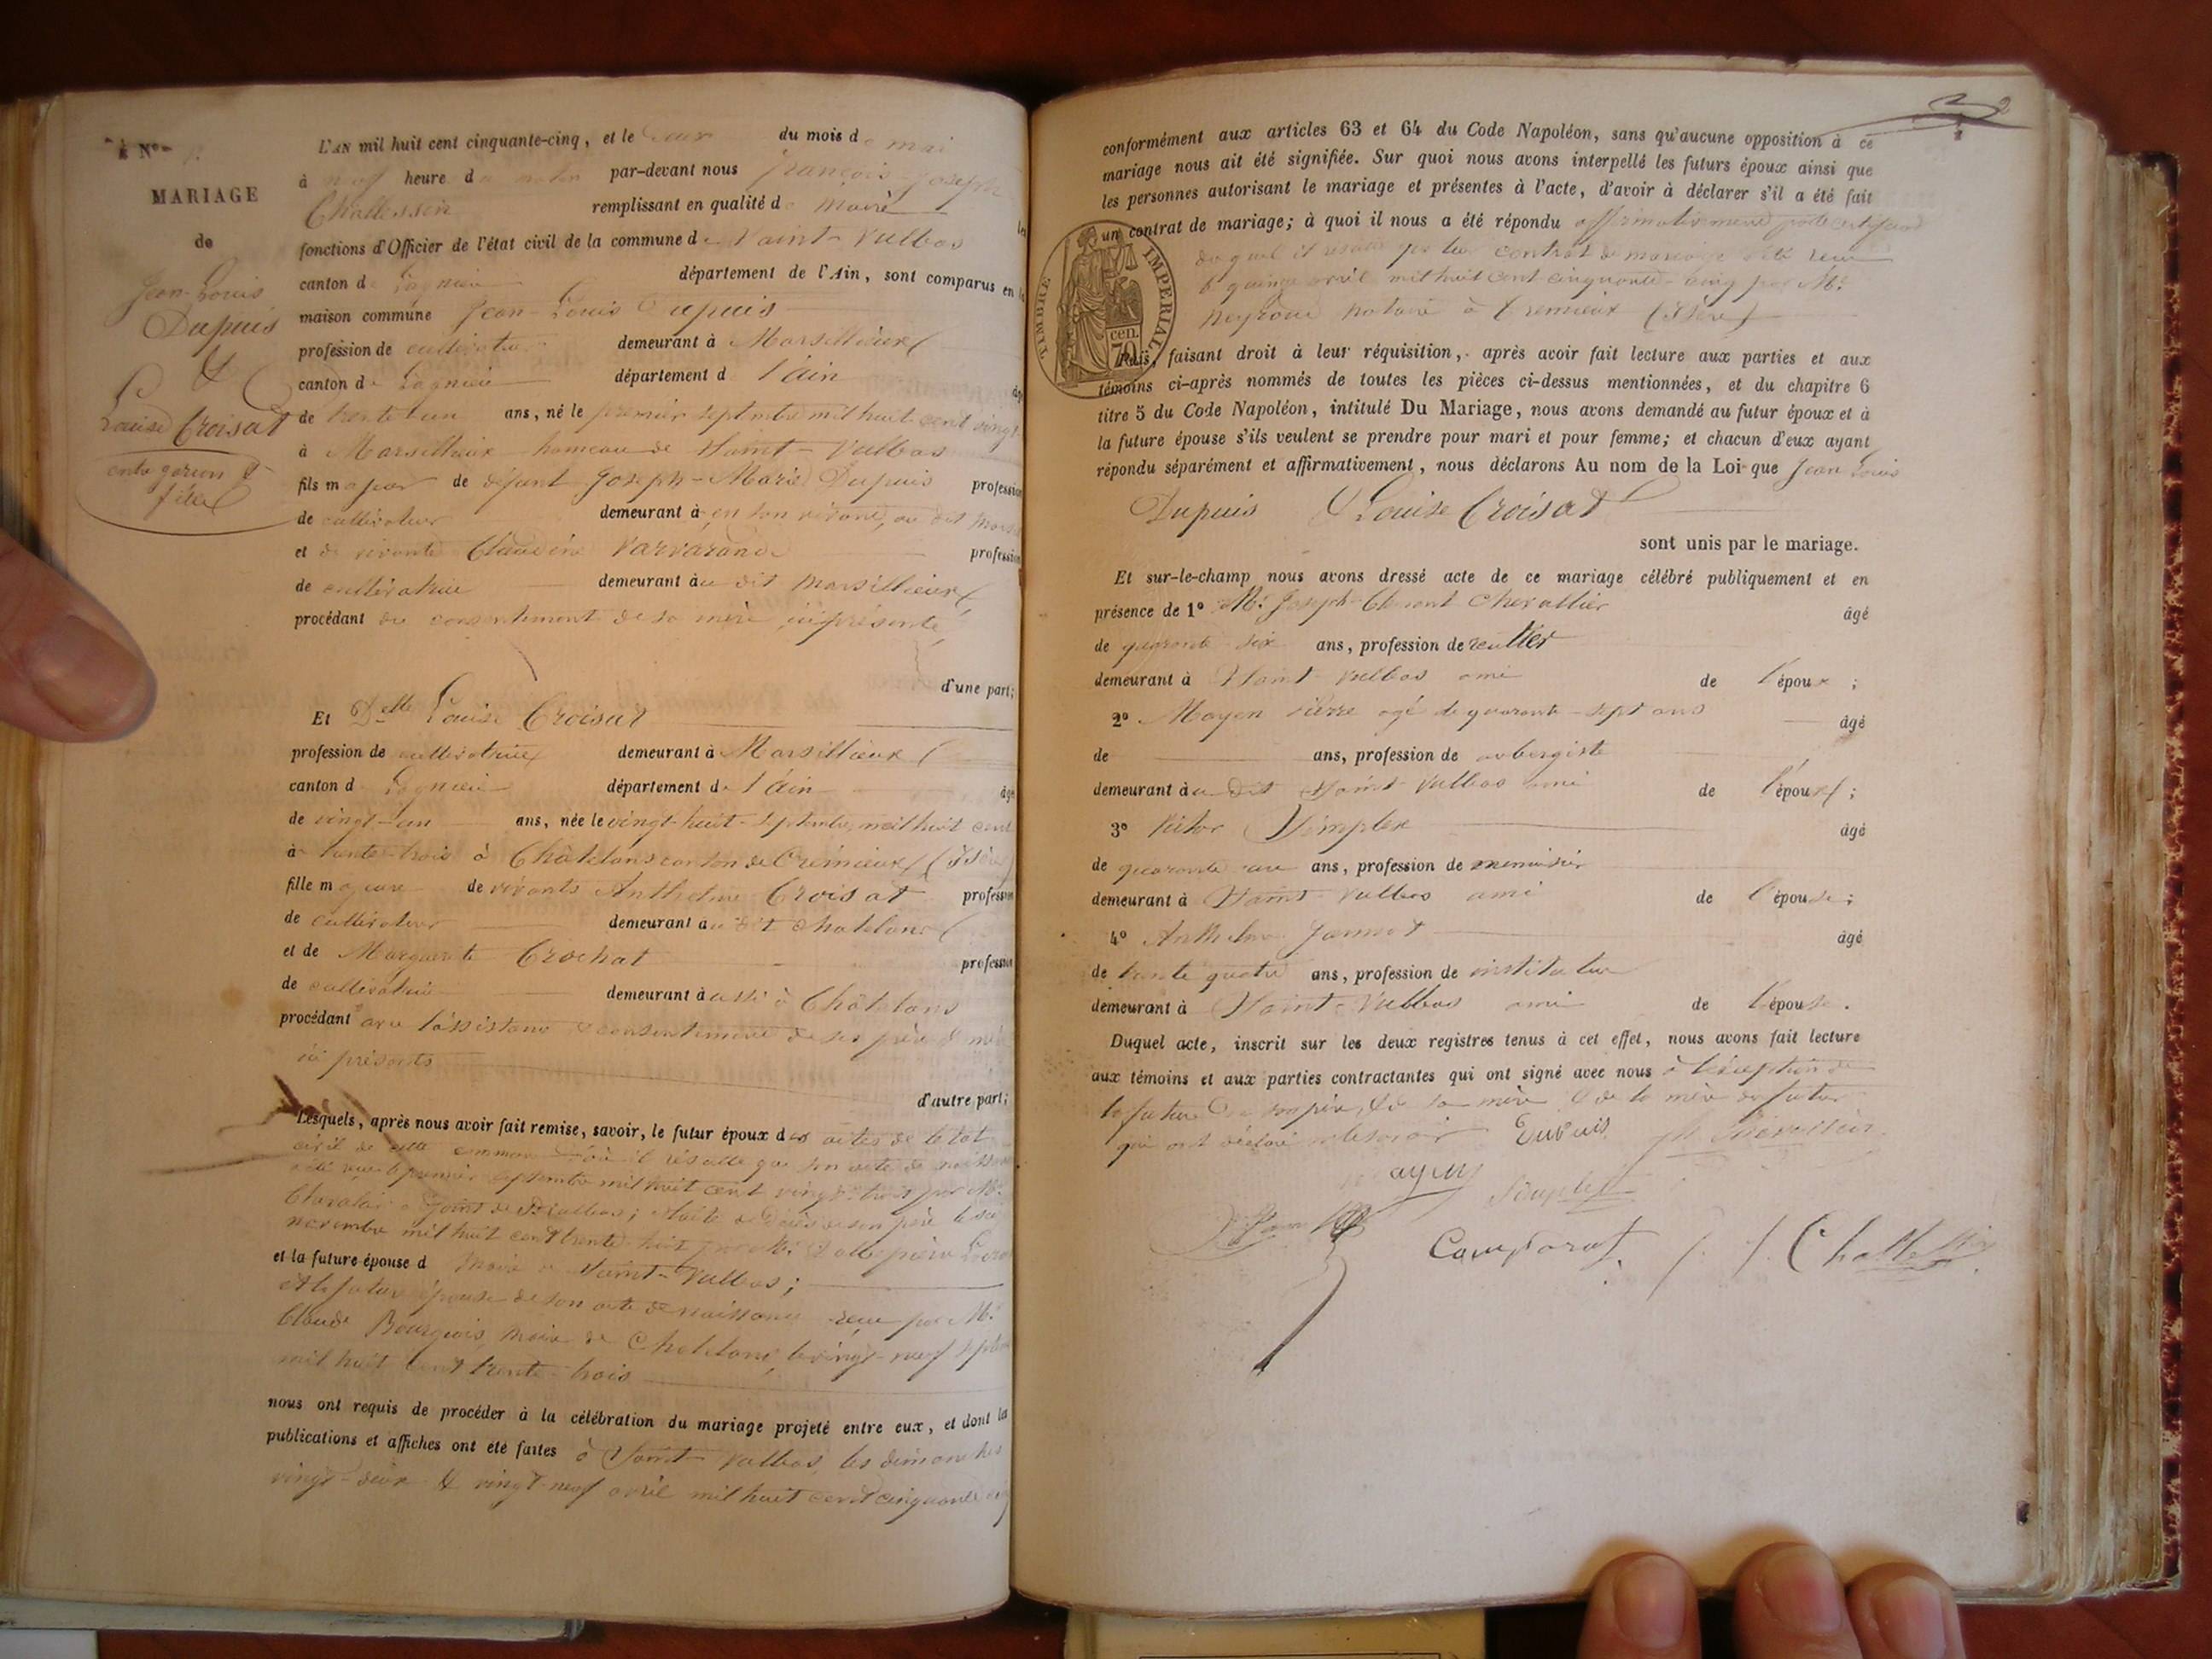 N°
MARIAGE
de
Jean-Louis
Dupuis
&
Louise Croisat
entre garçon &
fille
L'AN mil huit cent cinquante-cinq, et le deux du mois de mai
à neuf heure du matin par-devant nous François Joseph
remplissant en qualité de Maire les
fonctions d'Officier de l'état civil de la commune de Saint-Vulbas
canton de Lagnieu département de l'Ain, sont comparus en la
maison commune Jean-Louis Dupuis
profession de cultivateur demeurant à Marsillieux
canton de Lagnieu département de l'Ain
de trente un ans, né le premier septembre mil huit cent vingt
à Marsillieux hameau de Saint-Vulbas
fils majeur de défunt Joseph-Marie Dupuis profession
de cultivateur demeurant à en son vivant, au dit
et de vivante Claudine Varvarande profession
de cultivatrice demeurant au dit Marsillieux
procédant du consentement de sa mère ici présente
d'une part;
Et Delle Louise Croisat
profession de cultivatrice demeurant à Marsillieux
canton de Lagnieu département de l'Ain âgé
de vingt-un ans, née le vingt-huit septembre mil huit cent
à trente-trois à Châtelans canton de Crémieux (Isère)
fille majeure de vivants Anthelme Croisat profession
de cultivateur demeurant au dit Chatelans
et de Marguerite Crochat profession
de cultivatrice demeurant aussi à Châtelans
procédant avec l'assistance & consentement de ses père & mère
ici présents
d'autre part;
Lesquels, après nous avoir fait remise, savoir, le futur époux des actes de l'état
civil de cette commune d'où il résulte que son acte de naissance
a été reçu le premier septembre mil huit cent vingt-trois par Mr
Chevalier adjoint de St Vulbas; & l'acte de décès de son père le six
novembre mil huit cent trente-huit par Mr
et la future épouse d Maire de Saint-Vulbas;
et la future épouse de son acte de naissance reçu par Mr
Claude Bourgeois, Maire de Chatelans, le vingt-neuf septembre
mil huit cent trente-trois
nous ont requis de procéder à la célébration du mariage projeté entre eux, et dont les
publications et affiches ont été faites à Saint-Vulbas, les dimanches
vingt-deux & vingt-neuf avril mil huit cent cinquante cinq
2
conformément aux articles 63 et 64 du Code Napoléon, sans qu'aucune opposition à ce
mariage nous ait été signifiée. Sur quoi nous avons interpellé les futurs époux ainsi que
les personnes autorisant le mariage et présentes à l'acte, d'avoir à déclarer s'il a été fait
un contrat de mariage; à quoi il nous a été répondu affirmativement
duquel il résulte que leur contrat de mariage a été reçu
le quinze avril mil huit cent cinquante-cinq par Me
notaire à Cremieux (Isère)
TIMBRE IMPERIAL
cen.
70
Puis, faisant droit à leur réquisition, après avoir fait lecture aux parties et aux
témoins ci-après nommés de toutes les pièces ci-dessus mentionnées, et du chapitre 6
titre 5 du Code Napoléon, intitulé Du Mariage, nous avons demandé au futur époux et à
la future épouse s'ils veulent se prendre pour mari et pour femme; et chacun d'eux ayant
répondu séparément et affirmativement, nous déclarons Au nom de la Loi que Jean Louis
Dupuis & Louise Croisat
sont unis par le mariage.
Et sur-le-champ nous avons dressé acte de ce mariage célébré publiquement et en
présence de 1° Mr Joseph-Clément Chevallier âgé
de quarante six ans, profession de rentier
demeurant à Saint-Vulbas ami de l'époux ;
2° Mayen Pierre agé de quarante-sept ans âgé
de ans, profession de aubergiste
demeurant au dit Saint-Vulbas ami de l'époux ;
3° Victor Simplex âgé
de quarante ans, profession de menuisier
demeurant à Saint-Vulbas ami de l'épouse ;
4° Anthelme Jannot âgé
de trente quatre ans, profession de instituteur
demeurant à Saint-Vulbas ami de l'épouse.
Duquel acte, inscrit sur les deux registres tenus à cet effet, nous avons fait lecture
aux témoins et aux parties contractantes qui ont signé avec nous à l'exception de
la future de son père, & de sa mère & de la mère du futur
qui ont déclaré ne le savoir Dupuis
Camparat